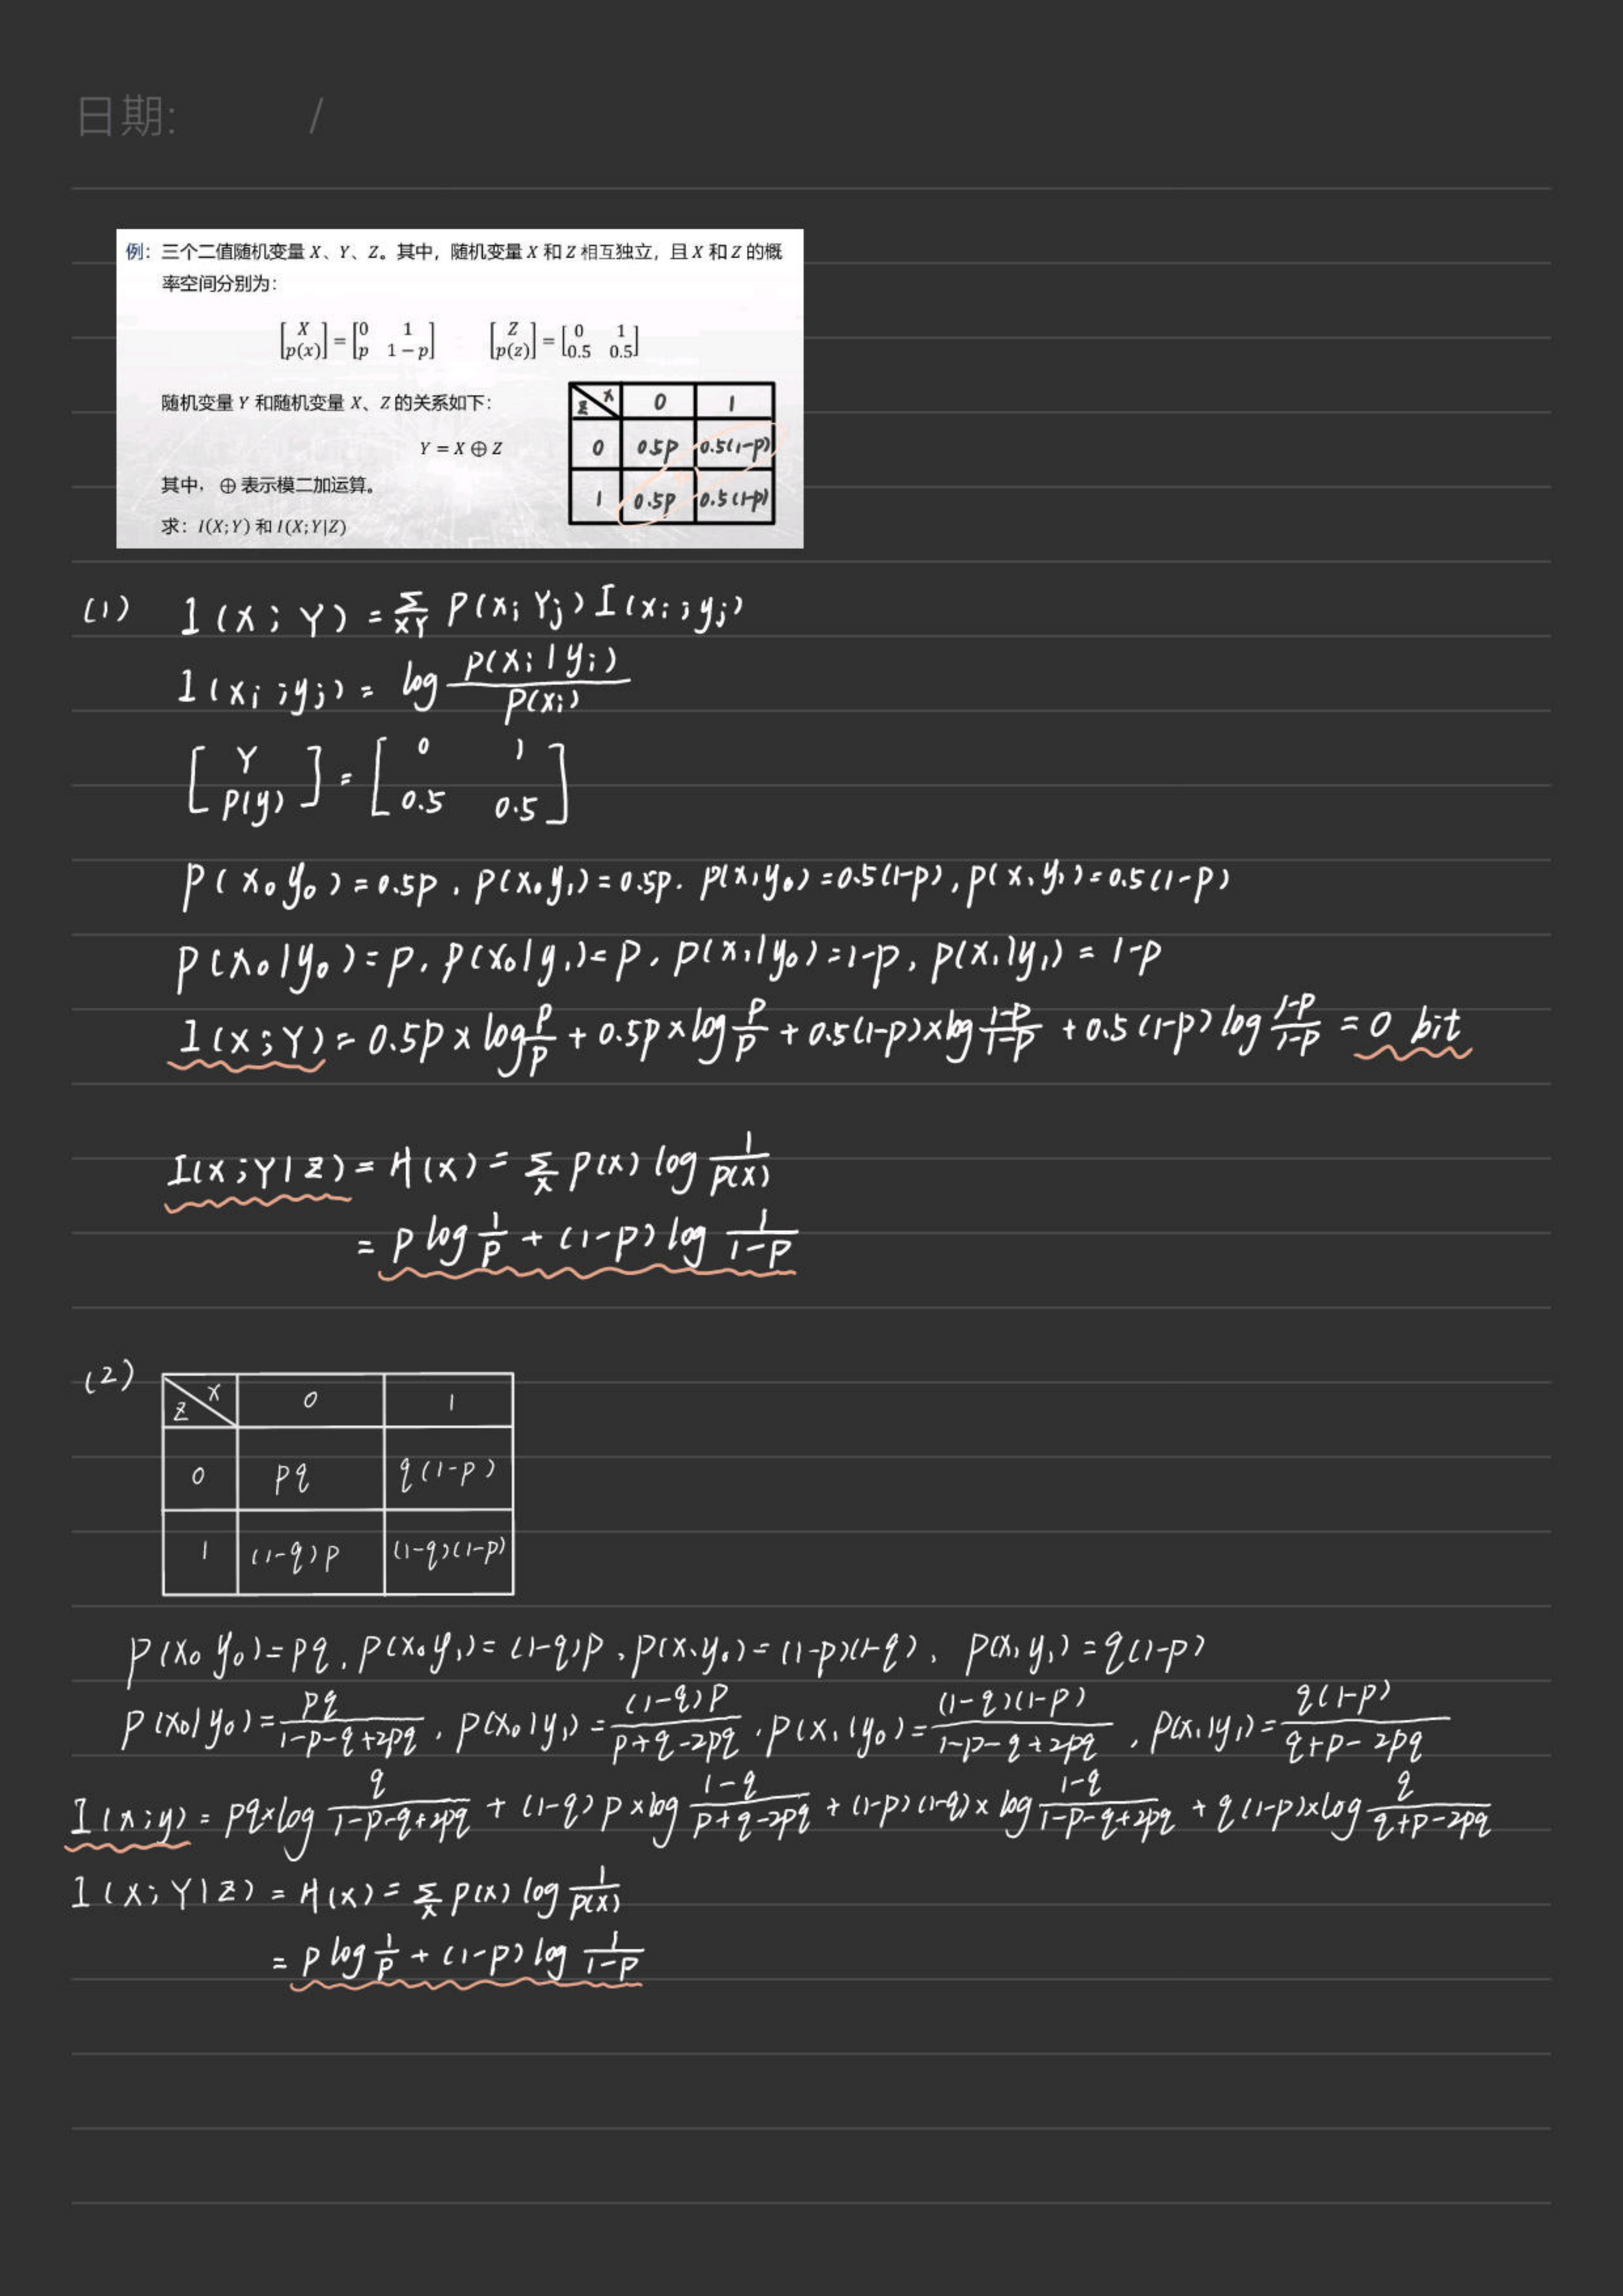 日期: /
例：三个二值随机变量 X、Y、Z。其中，随机变量 X 和 Z 相互独立，且 X 和 Z 的概
率空间分别为：
[X p(x)] = [0 1 p 1 − p] [Z p(z)] = [0 1 0.5 0.5]
随机变量 Y 和随机变量 X、Z 的关系如下：
Y = X ⊕ Z
其中，⊕ 表示模二加运算。
求：I(X;Y) 和 I(X;Y|Z)
Z X 0 1
0 0.5p 0.5(1-p)
1 0.5p 0.5(1-p)
(1) I(X;Y) = Σ_XY P(xi Yj) I(xi;yj)
I(xi;yj) = log P(xi|yi)/P(xi)
[Y P(y)] = [0 1 0.5 0.5]
P(x₀y₀)=0.5p, P(x₀y₁)=0.5p. P(x₁y₀)=0.5(1-p), P(x₁y₁)=0.5(1-p)
P(x₀|y₀)=p, P(x₀|y₁)=p, P(x₁|y₀)=1-p, P(x₁|y₁)=1-p
I(X;Y)= 0.5p×log p/p + 0.5p×log p/p + 0.5(1-p)×log (1-p)/(1-p) + 0.5(1-p)log (1-p)/(1-p) = 0 bit
I(X;Y|Z) = H(X) = Σ_x P(x) log 1/P(x)
= p log 1/p + (1-p) log 1/(1-p)
(2) Z X 0 1
0 pq q(1-p)
1 (1-q)p (1-q)(1-p)
P(x₀y₀)=pq, P(x₀y₁)=(1-q)p, P(x₁y₀)=(1-p)(1-q), P(x₁y₁)=q(1-p)
P(x₀|y₀)= pq/(1-p-q+2pq), P(x₀|y₁)= (1-q)p/(p+q-2pq), P(x₁|y₀)= (1-q)(1-p)/(1-p-q+2pq), P(x₁|y₁)= q(1-p)/(q+p-2pq)
I(x;y) = pq×log q/(1-p-q+2pq) + (1-q)p×log (1-q)/(p+q-2pq) + (1-p)(1-q)×log (1-q)/(1-p-q+2pq) + q(1-p)×log q/(q+p-2pq)
I(X;Y|Z) = H(X) = Σ_x P(x) log 1/P(x)
= p log 1/p + (1-p) log 1/(1-p)